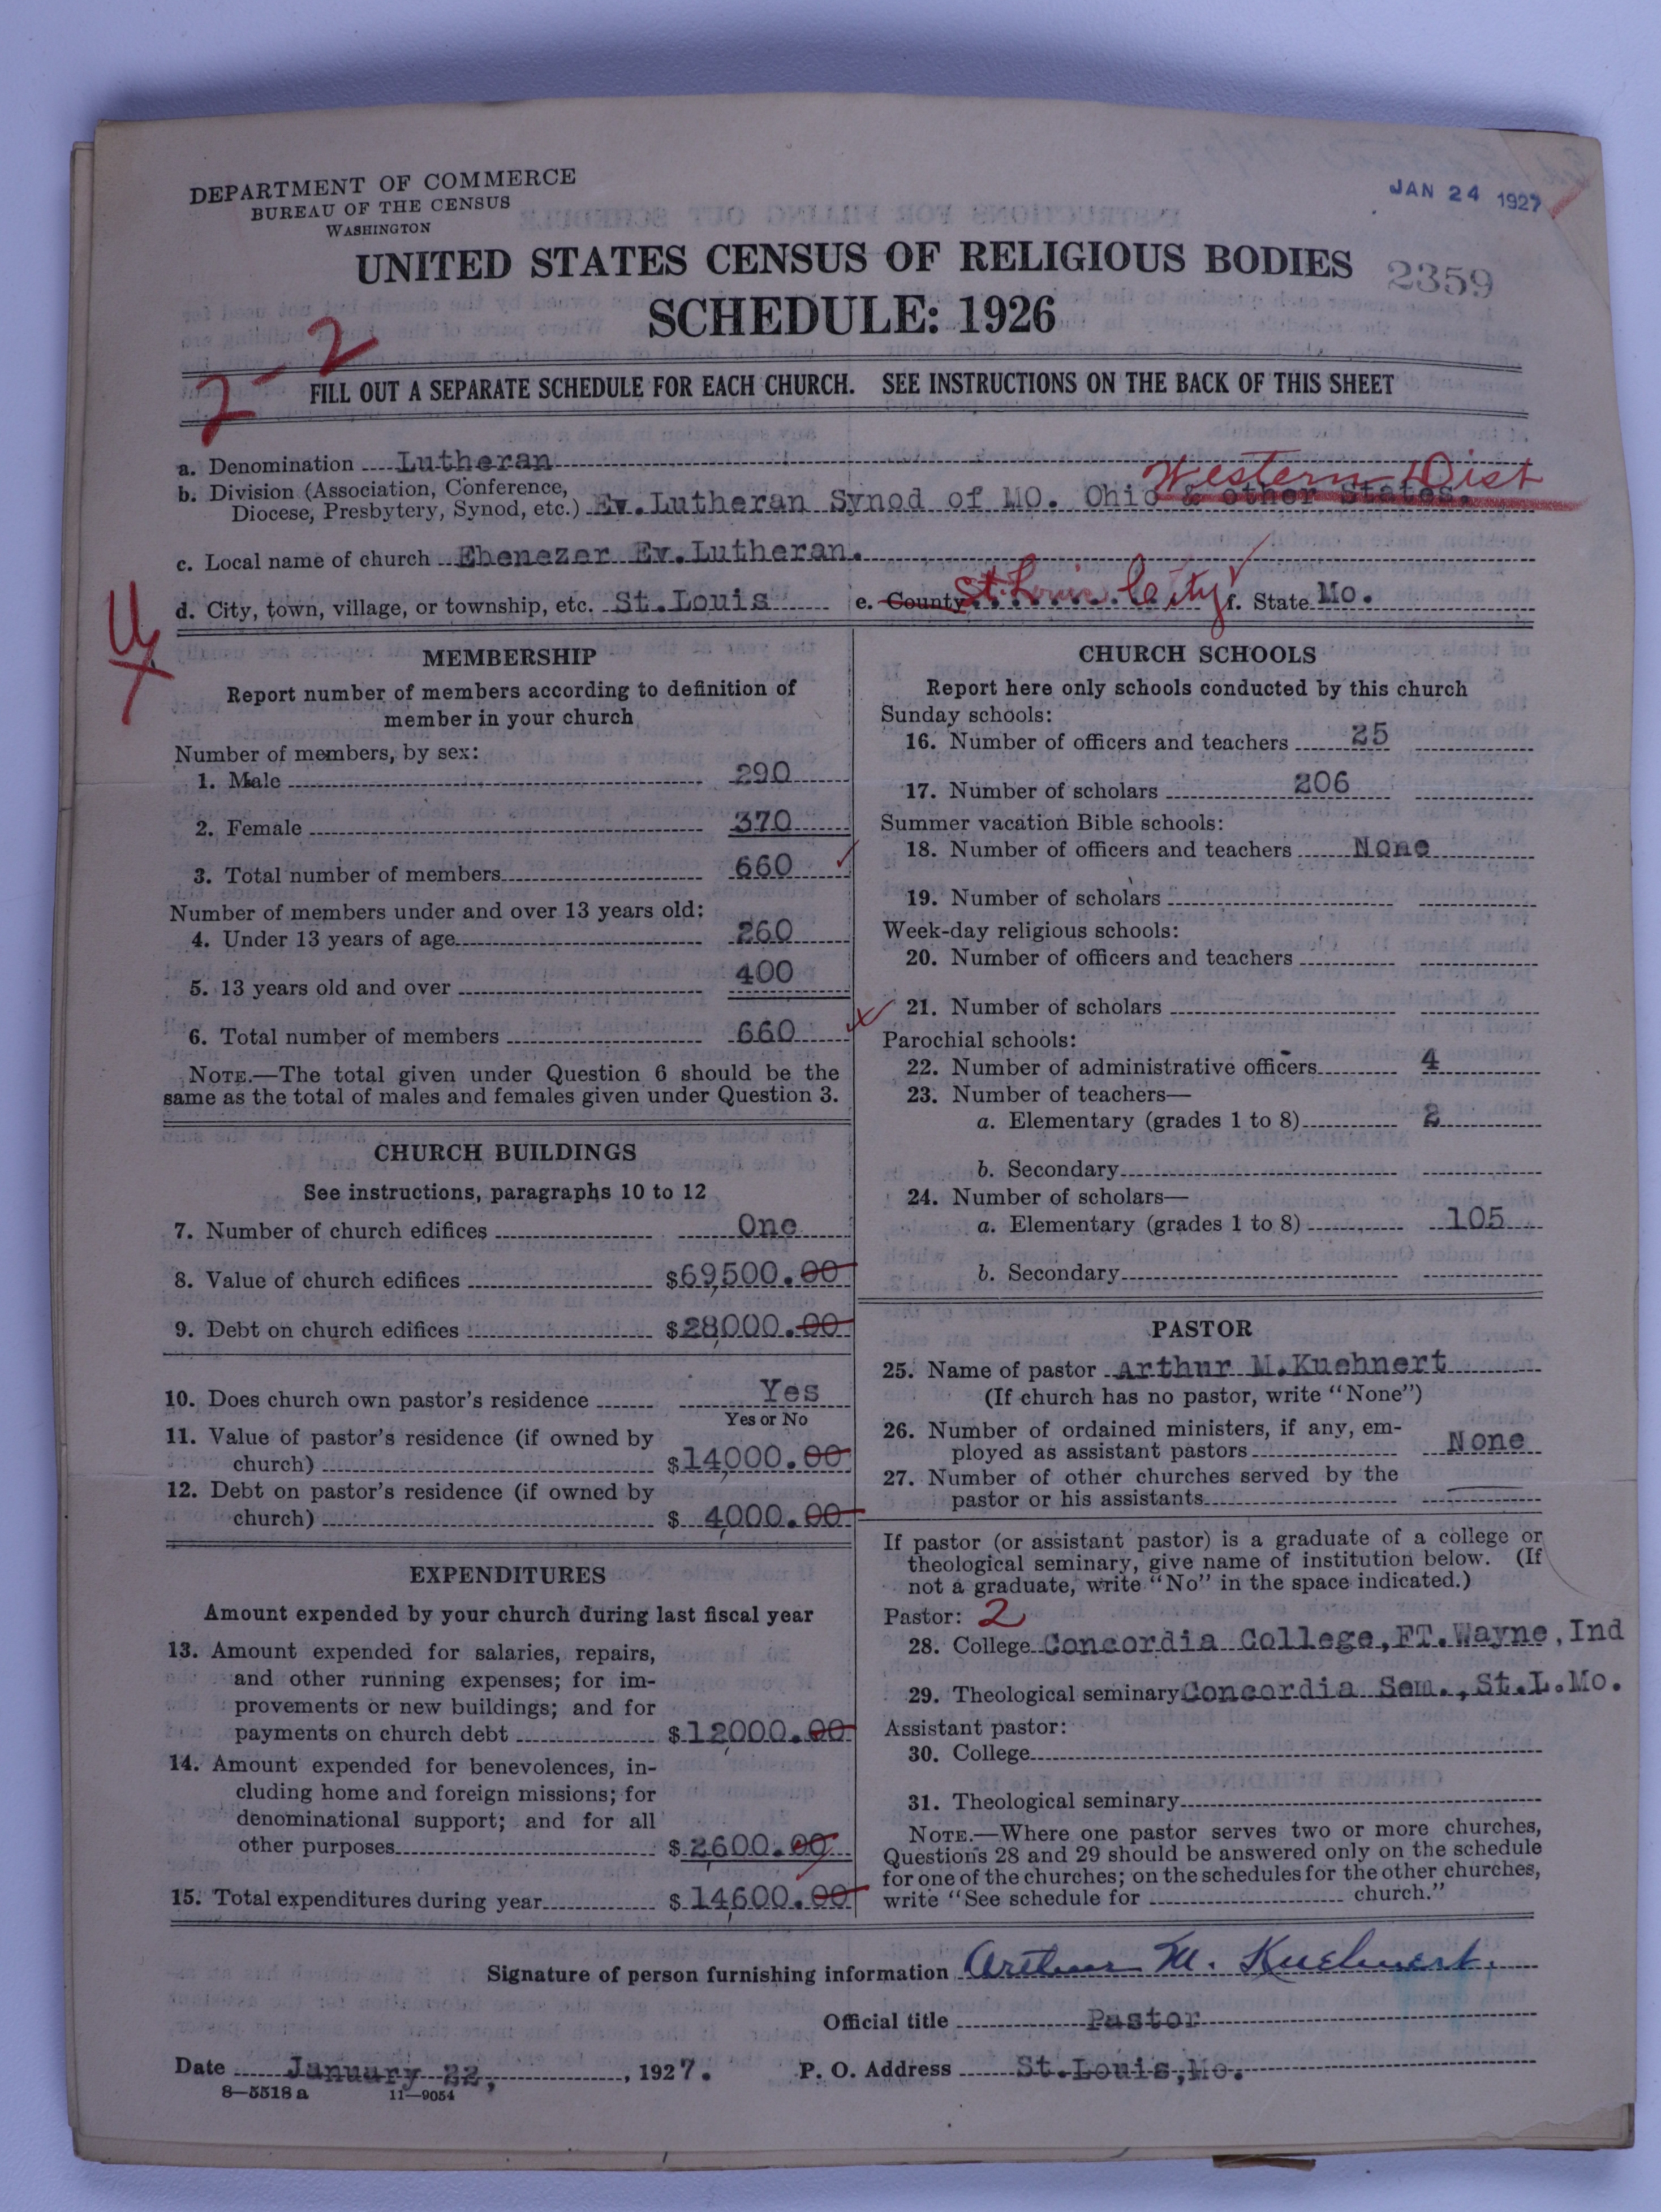 DEPARTMENT OF COMMERCE
BUREAU OF THE CENSUS
WASHINGTON
JAN 24 1927
UNITED STATES CENSUS OF RELIGIOUS BODIES
2359
SCHEDULE: 1926
2-2
FILL OUT A SEPARATE SCHEDULE FOR EACH CHURCH. SEE INSTRUCTIONS ON THE BACK OF THIS SHEET
a. Denomination Lutheran
Western Dist
b. Division (Association, Conference,
Diocese, Presbytery, Synod, etc.) Ev.Lutheran Synod of MO. Ohio & other States.
c. Local name of church Ebenezer Ev.Lutheran.
d. City, town, village, or township, etc. St.Louis e. County St. Louis City f. State Mo.
MEMBERSHIP
Report number of members according to definition of
member in your church
Number of members, by sex:
1. Male 290
2. Female 370
3. Total number of members 660
Number of members under and over 13 years old:
4. Under 13 years of age 260
5. 13 years old and over 400
6. Total number of members 660
NOTE.—The total given under Question 6 should be the
same as the total of males and females given under Question 3.
CHURCH BUILDINGS
See instructions, paragraphs 10 to 12
7. Number of church edifices One
8. Value of church edifices $69,500.00
9. Debt on church edifices $28,000.00
10. Does church own pastor's residence Yes
Yes or No
11. Value of pastor's residence (if owned by
church) $14,000.00
12. Debt on pastor's residence (if owned by
church) $ 4,000.00
EXPENDITURES
Amount expended by your church during last fiscal year
13. Amount expended for salaries, repairs,
and other running expenses; for im-
provements or new buildings; and for
payments on church debt $12,000.00
14. Amount expended for benevolences, in-
cluding home and foreign missions; for
denominational support; and for all
other purposes $2,600.00
15. Total expenditures during year $14,600.00
CHURCH SCHOOLS
Report here only schools conducted by this church
Sunday schools:
16. Number of officers and teachers 25
17. Number of scholars 206
Summer vacation Bible schools:
18. Number of officers and teachers None
19. Number of scholars
Week-day religious schools:
20. Number of officers and teachers
21. Number of scholars
Parochial schools:
22. Number of administrative officers 4
23. Number of teachers—
a. Elementary (grades 1 to 8) 2
b. Secondary
24. Number of scholars—
a. Elementary (grades 1 to 8) 105
b. Secondary
PASTOR
25. Name of pastor Arthur M.Kuehnert
(If church has no pastor, write "None")
26. Number of ordained ministers, if any, em-
ployed as assistant pastors None
27. Number of other churches served by the
pastor or his assistants
If pastor (or assistant pastor) is a graduate of a college or
theological seminary, give name of institution below. (If
not a graduate, write "No" in the space indicated.)
Pastor: 2
28. College Concordia College,FT.Wayne,Ind
29. Theological seminary Concordia Sem.,St.L.Mo.
Assistant pastor:
30. College
31. Theological seminary
NOTE.—Where one pastor serves two or more churches,
Questions 28 and 29 should be answered only on the schedule
for one of the churches; on the schedules for the other churches,
write "See schedule for church."
Signature of person furnishing information Arthur M. Kuehnert.
Official title Pastor
Date January 22, , 1927. P. O. Address St.Louis,Mo.
8—5518 a 11—9054